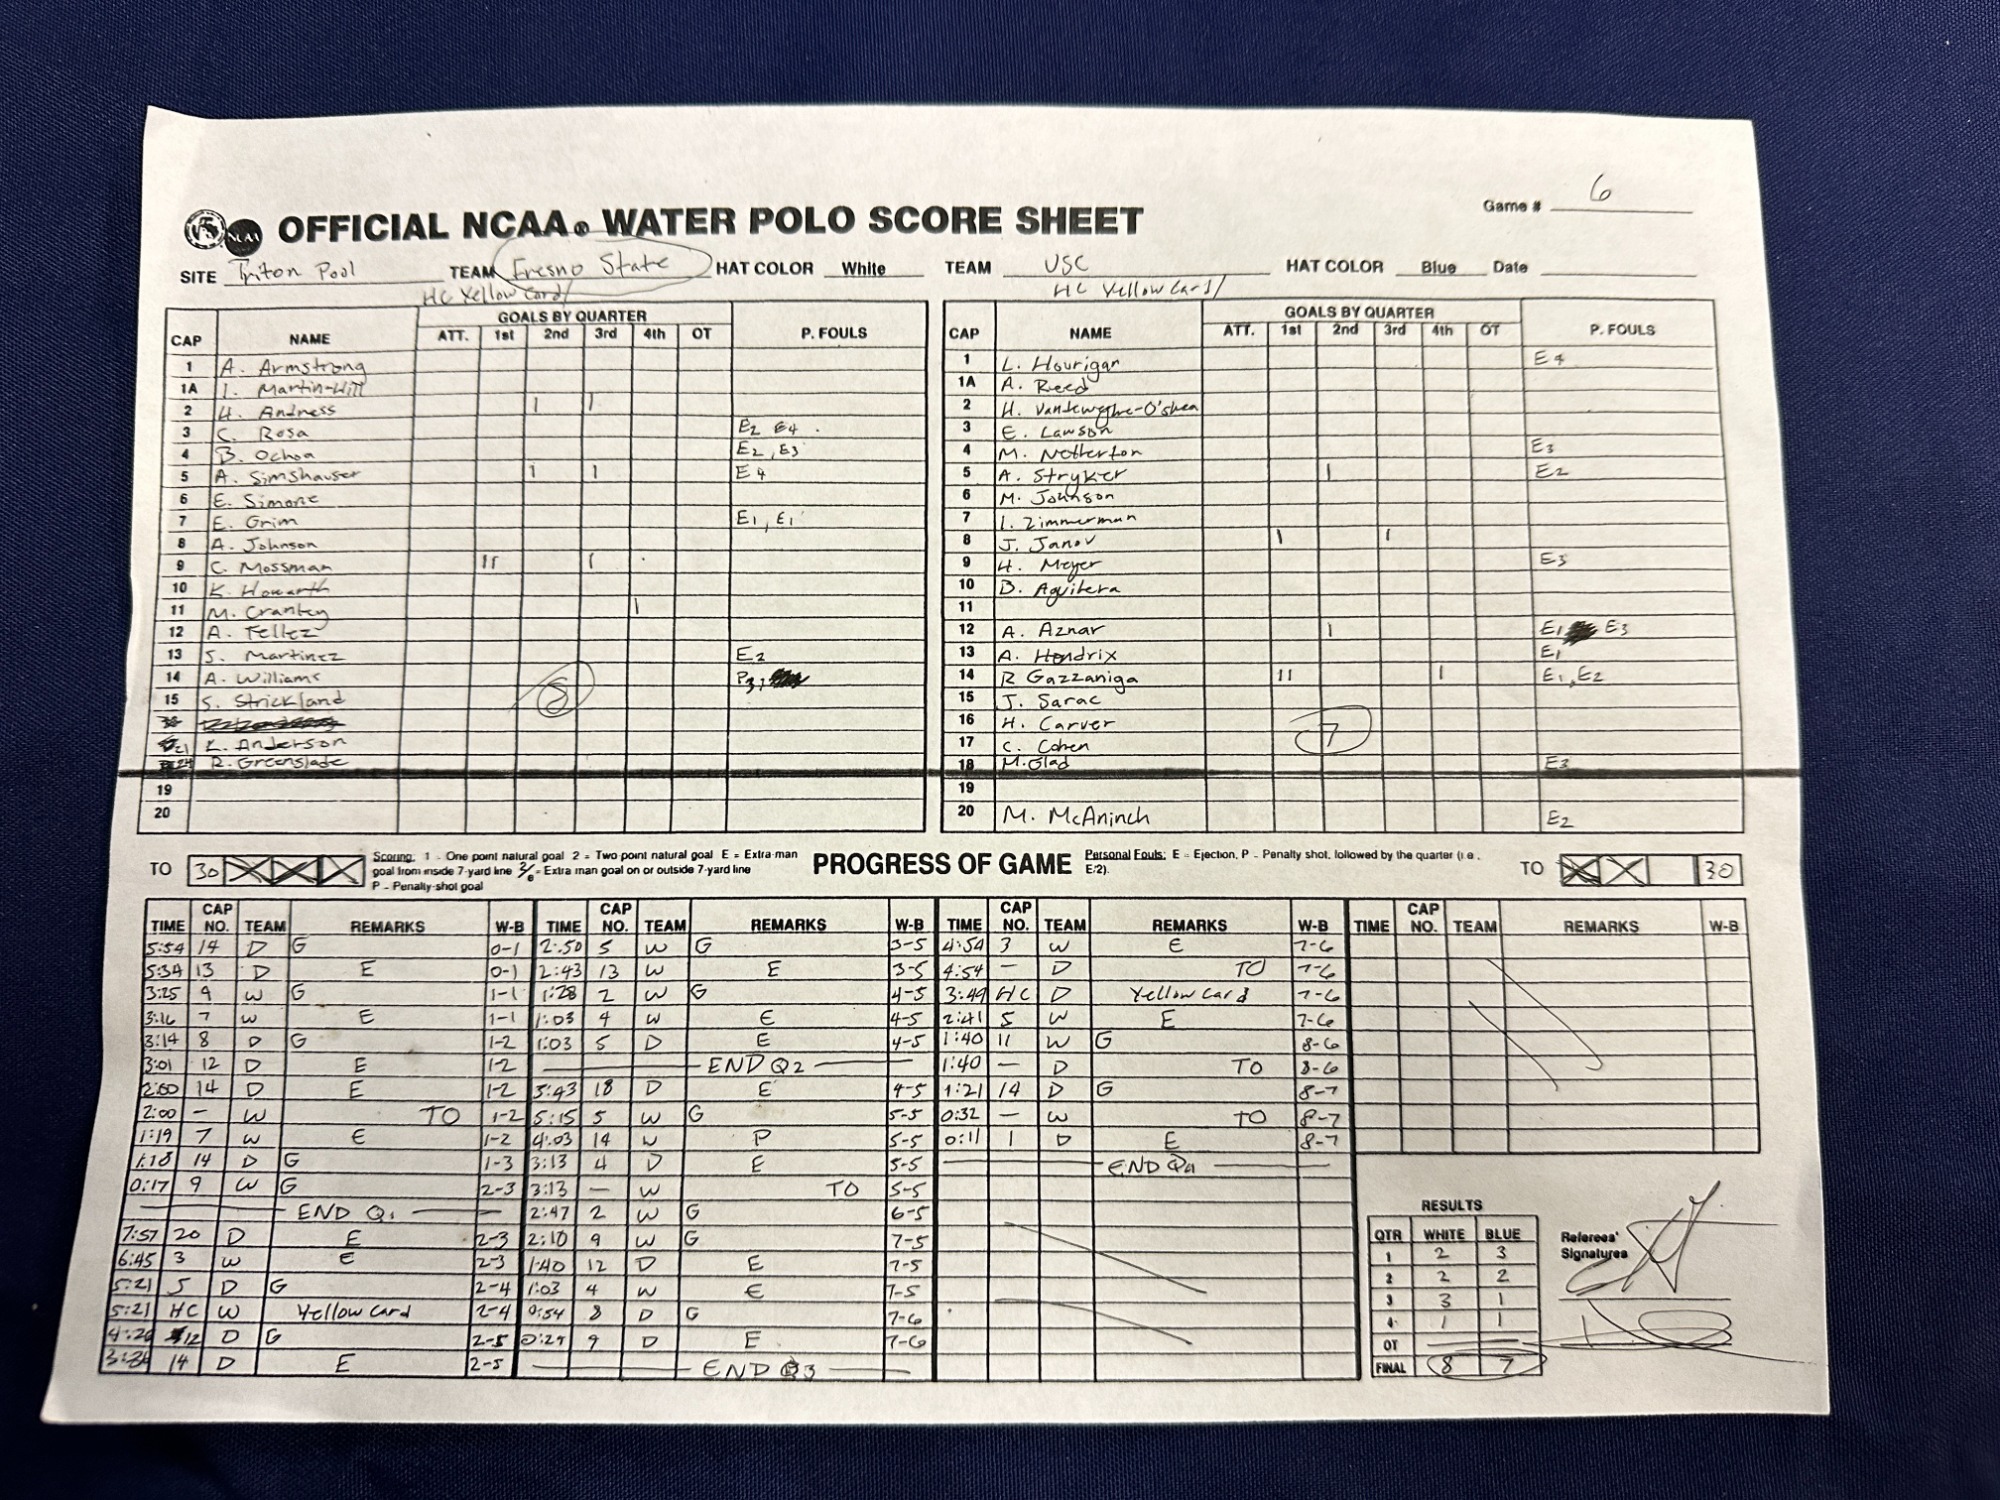 Game # 6
OFFICIAL NCAA® WATER POLO SCORE SHEET
SITE Triton Pool TEAM Fresno State HAT COLOR White TEAM USC HAT COLOR Blue Date
HC Yellow Card/ HC Yellow Card/
CAP NAME GOALS BY QUARTER ATT. 1st 2nd 3rd 4th OT P. FOULS CAP NAME GOALS BY QUARTER ATT. 1st 2nd 3rd 4th OT P. FOULS
1 A. Armstrong 1 L. Hourigan E4
1A I. Martin-Hill 1A A. Reed
2 H. Andress I I 2 H. Vandeweghe-O'shea
3 C. Rosa E2 E4 3 E. Lawson
4 B. Ochoa E2, E3 4 M. Netterton E3
5 A. Simshauser I I E4 5 A. Stryker I E2
6 E. Simone 6 M. Johnson
7 E. Grim E1, E1 7 I. Zimmerman
8 A. Johnson 8 J. Janov I I
9 C. Mossman II I 9 H. Meyer E3
10 K. Howarth 10 D. Aguilera
11 M. Crankey I 11
12 A. Tellez 12 A. Aznar I E1 E3
13 S. Martinez E2 13 A. Hendrix E1
14 A. Williams P3, 14 R Gazzaniga II I E1, E2
15 S. Strickland 8 15 J. Sarac
16 H. Carver 7
21 K. Anderson 17 C. Cohen
24 R. Greenslade 18 M. Glad E3
19 19
20 20 M. McAninch E2
TO 30 Scoring: 1 - One point natural goal 2 = Two point natural goal E = Extra-man goal from inside 7-yard line 2/e = Extra man goal on or outside 7-yard line P - Penalty-shot goal PROGRESS OF GAME Personal Fouls: E - Ejection, P - Penalty shot, followed by the quarter (i.e. E/2). TO 30
TIME CAP NO. TEAM REMARKS W-B
5:54 14 D G 0-1
5:34 13 D E 0-1
3:25 9 W G 1-1
3:16 7 W E 1-1
3:14 8 D G 1-2
3:01 12 D E 1-2
2:00 14 D E 1-2
2:00 - W TO 1-2
1:19 7 W E 1-2
1:18 14 D G 1-3
0:17 9 W G 2-3
END Q1
7:57 20 D E 2-3
6:45 3 W E 2-3
5:21 5 D G 2-4
5:21 HC W Yellow Card 2-4
4:20 12 D G 2-5
3:36 14 D E 2-5
TIME CAP NO. TEAM REMARKS W-B
2:50 5 W G 3-5
2:43 13 W E 3-5
1:28 2 W G 4-5
1:03 4 W E 4-5
1:03 5 D E 4-5
END Q2
5:43 18 D E 4-5
5:15 5 W G 5-5
4:03 14 W P 5-5
3:13 4 D E 5-5
3:13 — W TO 5-5
2:47 2 W G 6-5
2:10 9 W G 7-5
1:40 12 D E 7-5
1:03 4 W E 7-5
0:54 8 D G 7-6
0:29 9 D E 7-6
END Q3
TIME CAP NO. TEAM REMARKS W-B
4:54 3 W E 7-6
4:54 — D TO 7-6
3:49 HC D Yellow Card 7-6
2:41 5 W E 7-6
1:40 11 W G 8-6
1:40 — D TO 8-6
1:21 14 D G 8-7
0:32 — W TO 8-7
0:11 1 D E 8-7
END Q4
TIME CAP NO. TEAM REMARKS W-B
RESULTS
QTR WHITE BLUE
1 2 3
2 2 2
3 3 1
4 1 1
OT
FINAL 8 7
Referees' Signatures